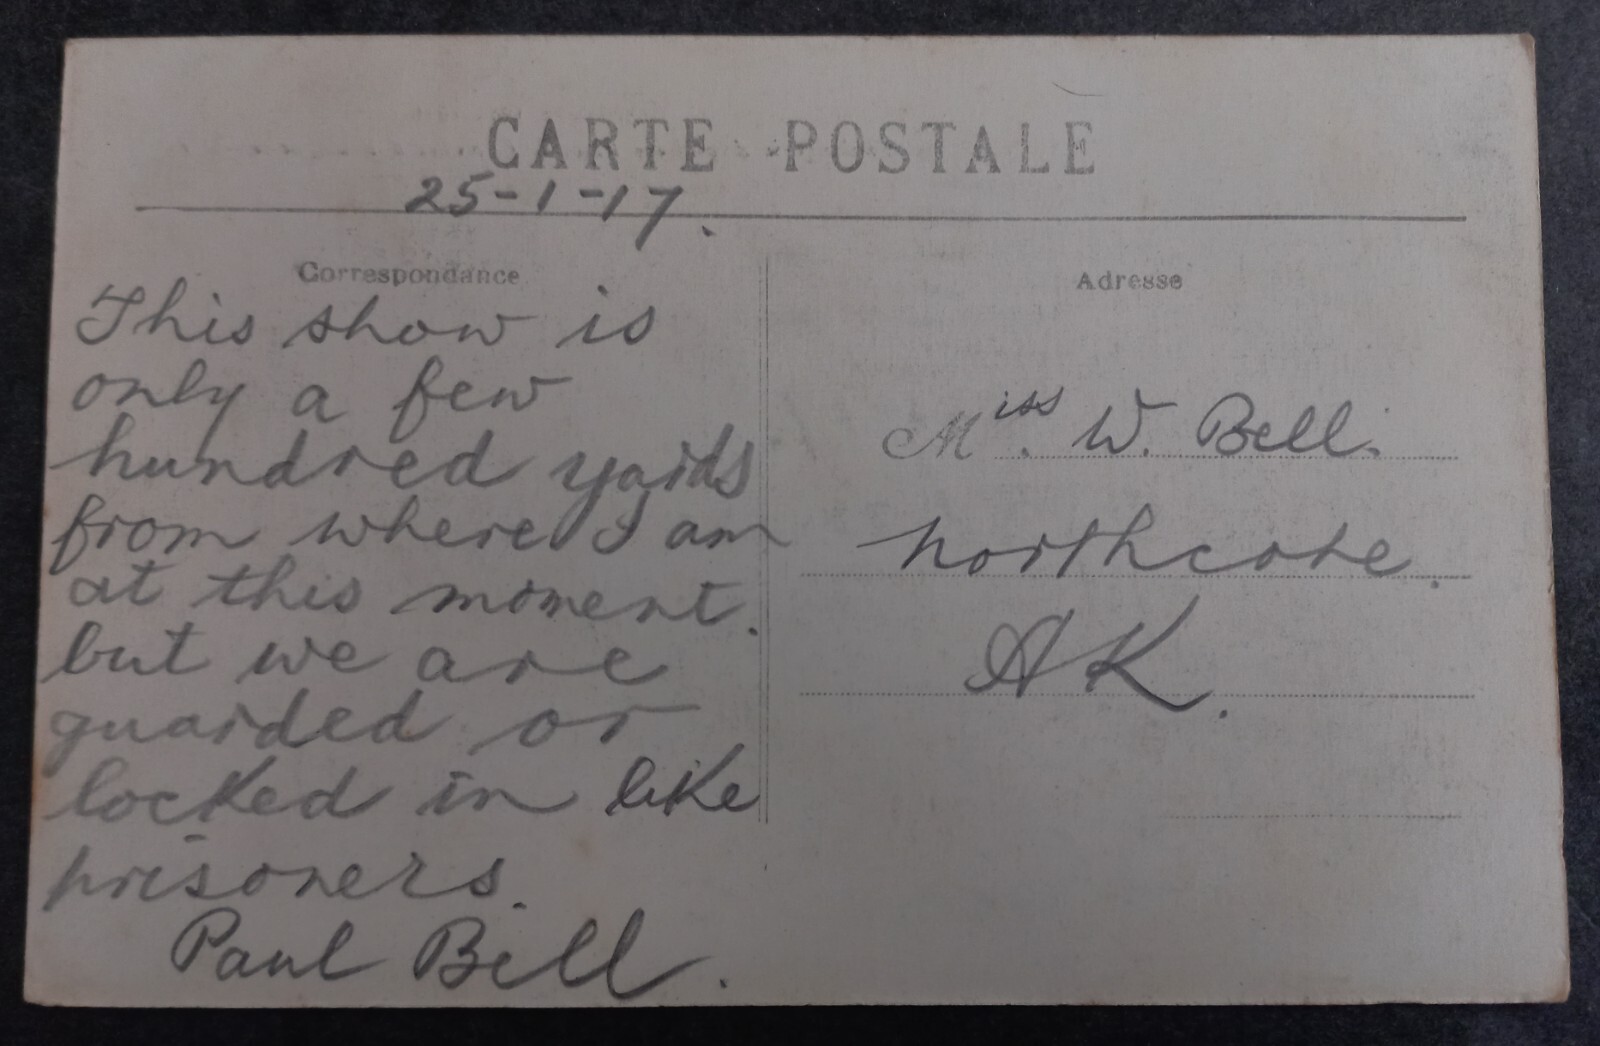 CARTE POSTALE
25-1-17.
Correspondance
This show is
only a few
hundred yards
from where I am
at this moment.
but we are
guarded or
locked in like
prisoners.
Paul Bell.
Adresse
Miss. W. Bell.
Northcote.
AK.